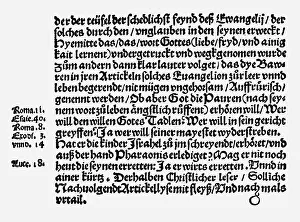 der der teüfel der schedlichst feynd deß Ewangelij/ der
solches durch den/ vnglauben in den seynen erweckt/
Hyemitte das/ das/ wort Gottes (liebe/ fryd/ vnd ainig
kait lernent) vndergetruckt vnd wegk genommen wurde
zům andern dann klar lauter volget/ das dye Bawꝛ
ren in jren Artickeln solches Euangelion zůr leer vnnd
leben begerendt/ nit mügen vngehoꝛsam/ Auffrürisch/
genennt werden/ Ob aber Got die Pauren (nach seynẽ
woꝛt zů leben ängstlich rüffent) erhören will/ Wer
will den willen Gotes Tadlen: Wer will in sein gericht
greyffen: Ja wer will seiner mayestet wyderstreben
Hat er die kinder Israhel zů jm schreyendt/ erhöret/ vnd
auß der hand Pharaonis erlediget? Mag er nit noch
heut die seynen erretten? Ja er wirts erretten. Vnnd in
ainer kürtz. Derhalben Christlicher leser/ Sölliche
Nachuolgendt Artickel lyß mit fleyß/ Vnd nach mals
vrtail.
Roma.11.
Esaie.40.
Roma.8.
Exod.3.
vnnd.14
Luc.18.